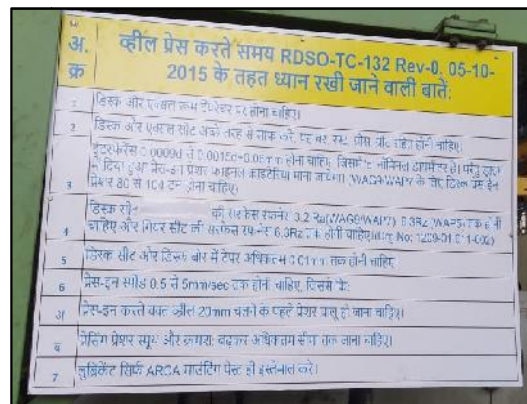 अ. क्र
व्हील प्रेस करते समय RDSO-TC-132 Rev-0, 05-10-
2015 के तहत ध्यान रखी जाने वाली बातें:
1 डिस्क और एक्सल रूम टेंपरेचर पर होना चाहिए।
2 डिस्क और एक्सल सीट अच्छे तरह से साफ करें,
3 इंटरफेरेंस 0.0009d से 0.0015d+0.06mm होना चाहिए, जिसमें नॉमिनल डायमीटर है। परंतु
दिया हुआ प्रेस-इन प्रेशर फाइनल क्राइटेरिया माना जायेगा। (WAG9/WAP7 के लिए डिस्क प्रेस ईन
प्रेशर 80 से 104 टन होना चाहिए।
4 डिस्क की सरफेस रफनेस 3.2 Ra(WAG9/WAP7), 6.3Rz(WAP5) तक होनी
चाहिए और गियर सीट की सरफेस रफनेस 6.3Rz तक होनी चाहिए।
5 डिस्क सीट और डिस्क बोर में टेपर अधिकतम 0.01mm तक होनी चाहिए
6 प्रेस-इन स्पीड 0.5 से 5mm/sec तक होनी चाहिए, जिसमें कि:
अ प्रेस-इन करते वक्त व्हील 20mm चलने के पहले प्रेशर चालू हो जाना चाहिए।
ब प्रेसिंग प्रेशर स्मूथ और क्रमशः बढ़कर अधिकतम सीमा तक जाना चाहिए।
7 लुब्रिकेंट सिर्फ ARCA माउंटिंग पेस्ट ही इस्तेमाल करे।